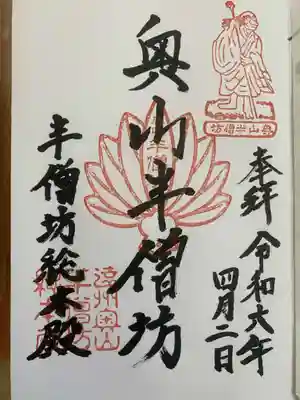 奉拝
令和六年
四月二日
奥山半僧坊
半僧坊総本殿
奥山半僧坊
半僧
遠州奥山